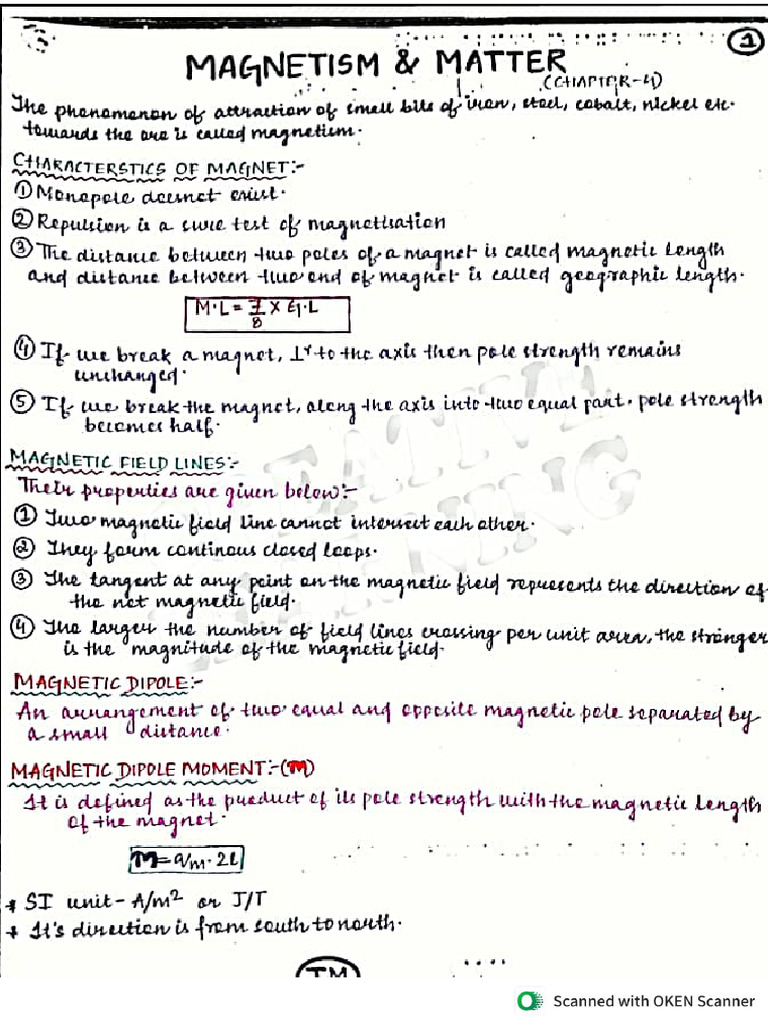 1
MAGNETISM & MATTER
(CHAPTER-4)
The phenomenon of attraction of small bits of iron, steel, cobalt, nickel etc.
towards the ore is called magnetism.
CHARACTERSTICS OF MAGNET:-
① Monopole doesnot exist.
② Repulsion is a sure test of magnetisation
③ The distance between two poles of a magnet is called magnetic length
and distance between two end of magnet is called geographic length.
M.L = 7/8 × G.L
④ If we break a magnet, ⊥r to the axis then pole strength remains
unchanged.
⑤ If we break the magnet, along the axis into two equal part. pole strength
becomes half.
CREATIVE
LEARNING
MAGNETIC FIELD LINES:-
Their properties are given below:-
① Two magnetic field line cannot intersect each other.
② They form continous closed loops.
③ The tangent at any point on the magnetic field represents the direction of
the net magnetic field.
④ The larger the number of field lines crossing per unit area, the stronger
is the magnitude of the magnetic field.
MAGNETIC DIPOLE:-
An arrangement of two equal and opposite magnetic pole separated by
a small distance.
MAGNETIC DIPOLE MOMENT:-(M)
It is defined as the product of its pole strength with the magnetic length
of the magnet.
M = q/m . 2l
* SI unit - A/m² or J/T
+ It's direction is from south to north.
TM
Scanned with OKEN Scanner